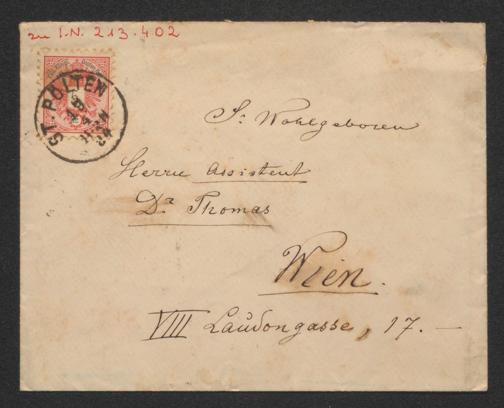 zu I.N. 213.402
ST. PÖLTEN
Sr Wohlgeboren
Herrn Assistent
Dr Thomas
Wien.
VIII Laudongasse, 17. —